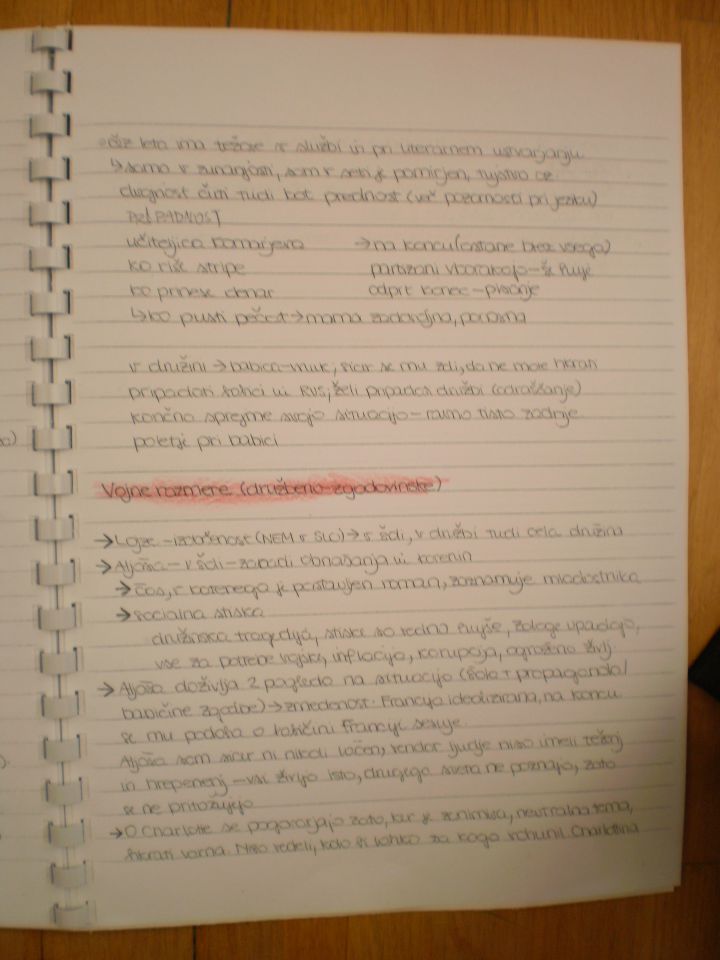 čez leto ima težave v službi in pri literarnem ustvarjanju
↳ samo v zunanjosti, sam v sebi je pomirjen, tujstvo oz.
drugačnost čuti tudi kot prednost (več pozornosti pri jeziku)
PRIPADNOST
učiteljica komarjeva → na koncu (ostane brez vsega)
ko riše stripe partizani vkorakajo – še hujše
ko prinese denar odprt konec – pisanje
↳ ko pusti pečat → mama zadovoljna, ponosna
v družini → babica – muc, sicer se mu zdi, da ne more hkrati
pripadati babici in RUS, želi pripadati družbi (odraščanje)
končno sprejme svojo situacijo – ravno tisto zadnje
poletje pri babici
Vojne razmere (družbeno zgodovinske)
→ Lojze – izobčenost (NEM v SLO) → v šoli, v družbi tudi cela družina
→ Aljoša – v šoli – zaradi obnašanja in korenin
→ čas, v katerega je postavljen roman, zaznamuje mladostnika
→ socialna stiska
družinska tragedija, stiske so vedno hujše, zaloge upadajo,
vse za potrebe vojske, inflacija, korupcija, ogroženo življ.
→ Aljoša doživlja 2 pogleda na situacijo (šola + propaganda /
babičine zgodbe) → zmedenost. Francija idealizirana, na koncu
se mu podoba o babičini Franciji sesuje.
Aljoša sam sicer ni nikoli lačen, vendar ljudje niso imeli teženj
in hrepenenj – vsi živijo isto, drugega sveta ne poznajo, zato
se ne pritožujejo
→ O Charlotte se pogovarjajo zato, ker je zanimiva, nevtralna tema,
hkrati varna. Niso vedeli, kdo bi lahko za koga vohunil. Charlottina